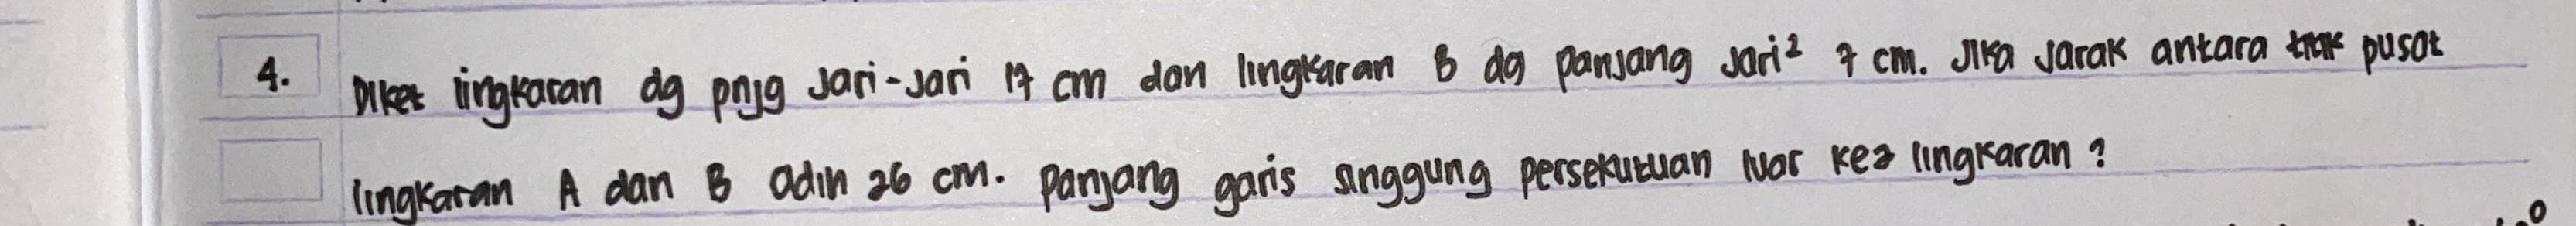 4. Diket lingkaran dg pnjg Jari-Jari 17 cm dan lingkaran B dg panjang Jari² 7 cm. Jika Jarak antara pusat
lingkaran A dan B adlh 26 cm. panjang garis singgung persekutuan luar ke2 lingkaran ?